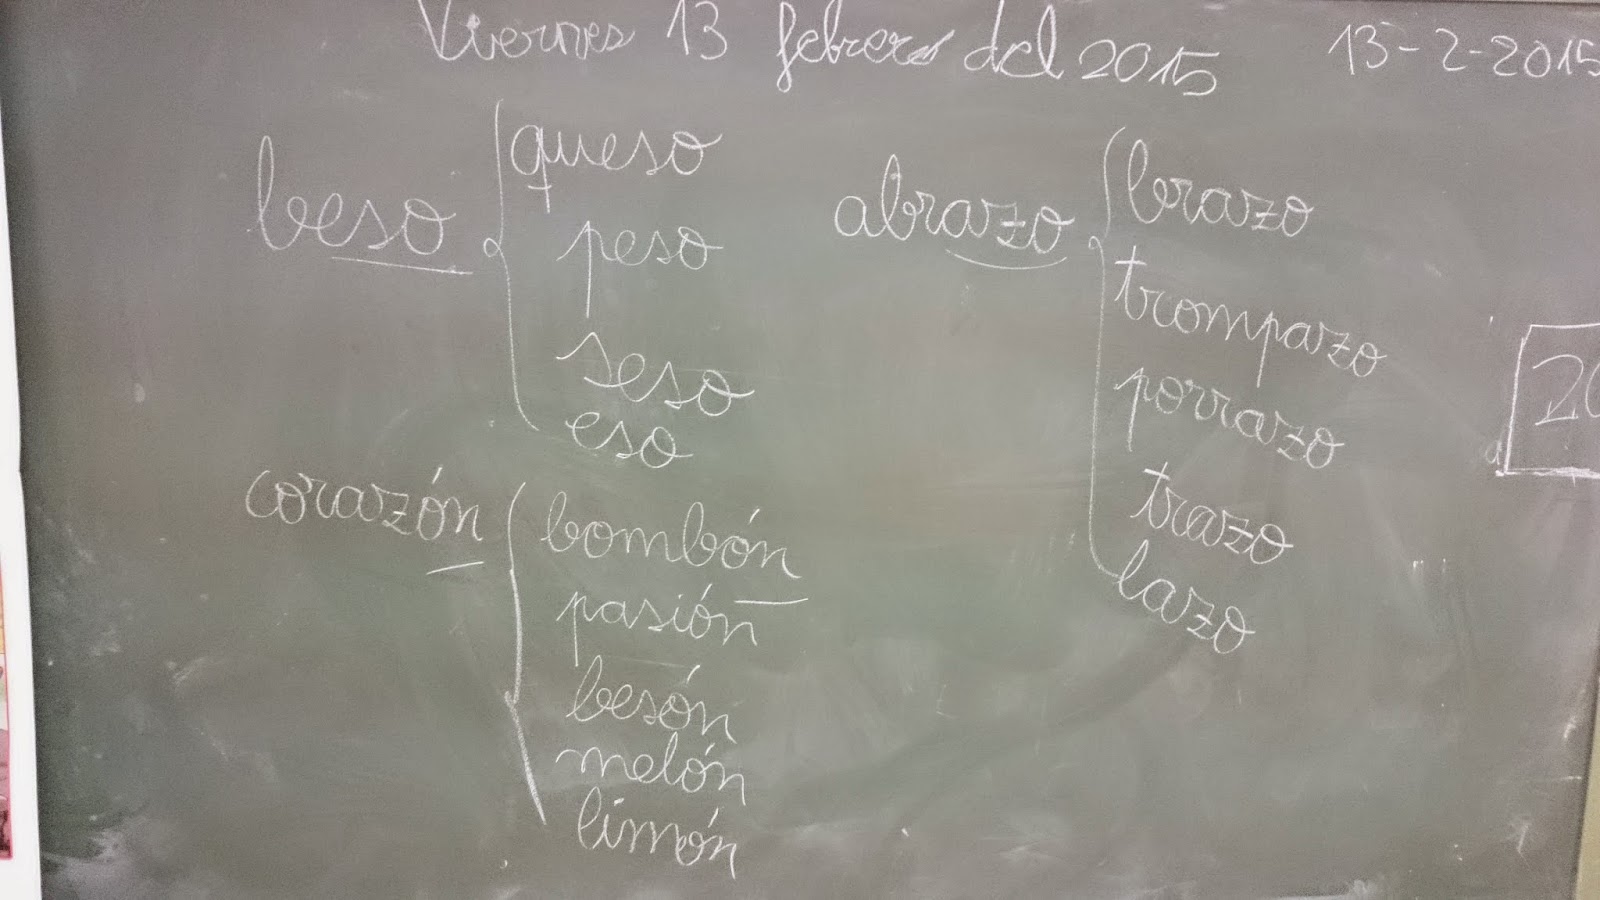 Viernes 13 febrero del 2015 13-2-2015
beso
queso
peso
seso
eso
abrazo
brazo
trompazo
porrazo
trazo
lazo
20
corazón
bombón
pasión
besón
melón
limón